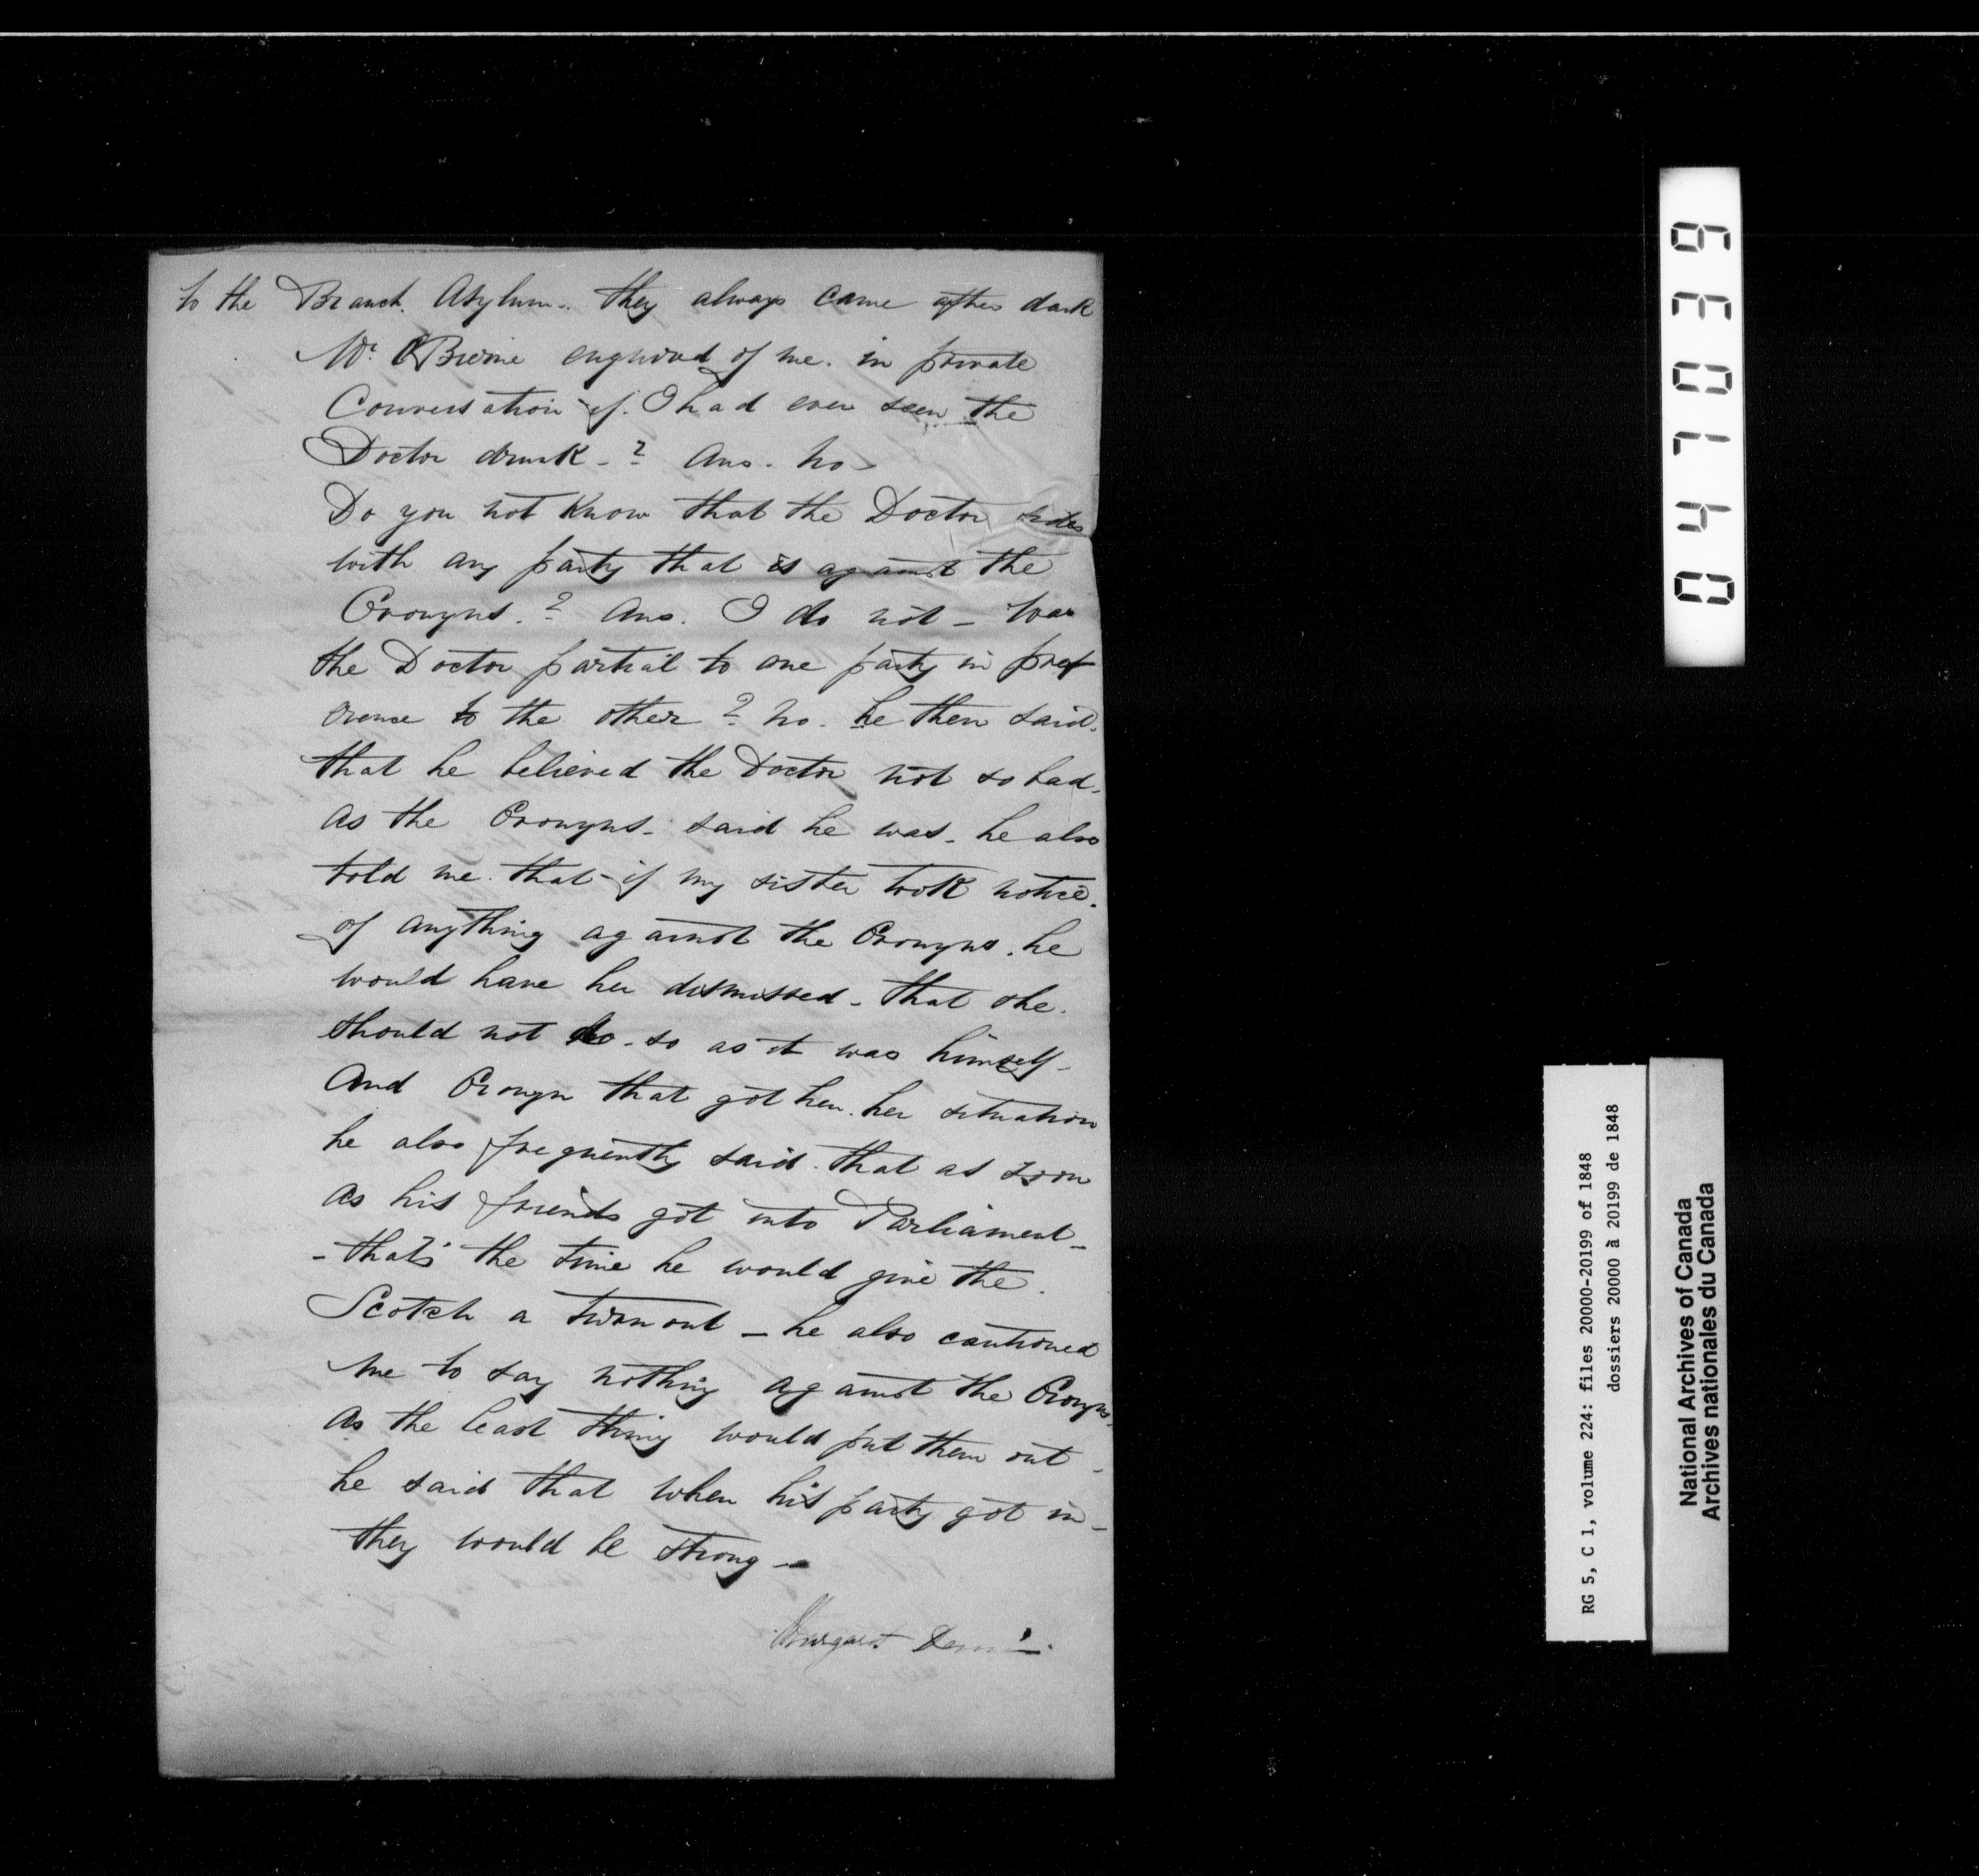 to the Branch. Asylum.. they always came after dark
Mr. OBeirne enquired of me. in private
Conversation if. I had ever seen the
Doctor drunk -? Ans. no -
Do you not know that the Doctor sides
with any party that is against the
Cronyns.? Ans. I do not - Was
the Doctor partial to one party in pref
erence to the other? no. he then said.
that he believed the Doctor not so bad.
as the Cronyns - said he was - he also
told me. that if my sister took notice.
of anything against the Cronyns. he
would have her dismissed - that she.
should not do - so as it was himself -
and Cronyn that got her. her situation
he also frequently said. that as soon
as his friends got into Parliament -
- that's the time he would give the.
Scotch a turn out - he also cautioned
me to say nothing against the Cronyns.
as the least thing would put them out -
he said that when his party got in -
they would be strong -
Margaret
046039
RG 5, C 1, volume 224: files 20000-20199 of 1848
dossiers 20000 à 20199 de 1848
National Archives of Canada
Archives nationales du Canada